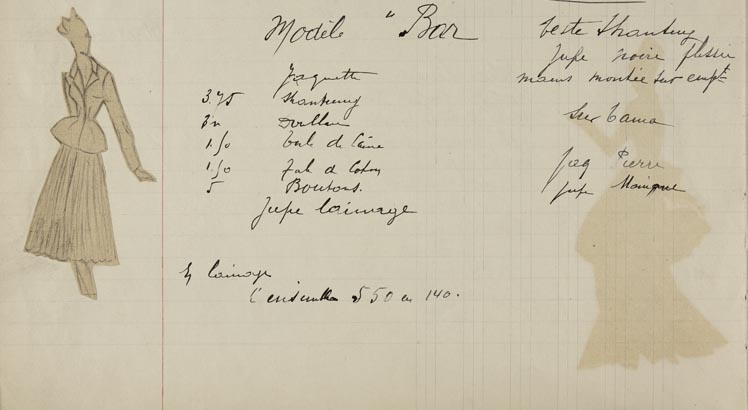 Modèle " Bar
Jaquette
3.75 Shantung
3m Doublure
1.50 toile de laine
1.50 toile de coton
5 Boutons.
Jupe lainage
En lainage
l'ensemble 5 50 en 140.
Veste Shantung
Jupe noire plissée
mains montée sur empt
sur tama
Jaq Pierre
Jupe Monique